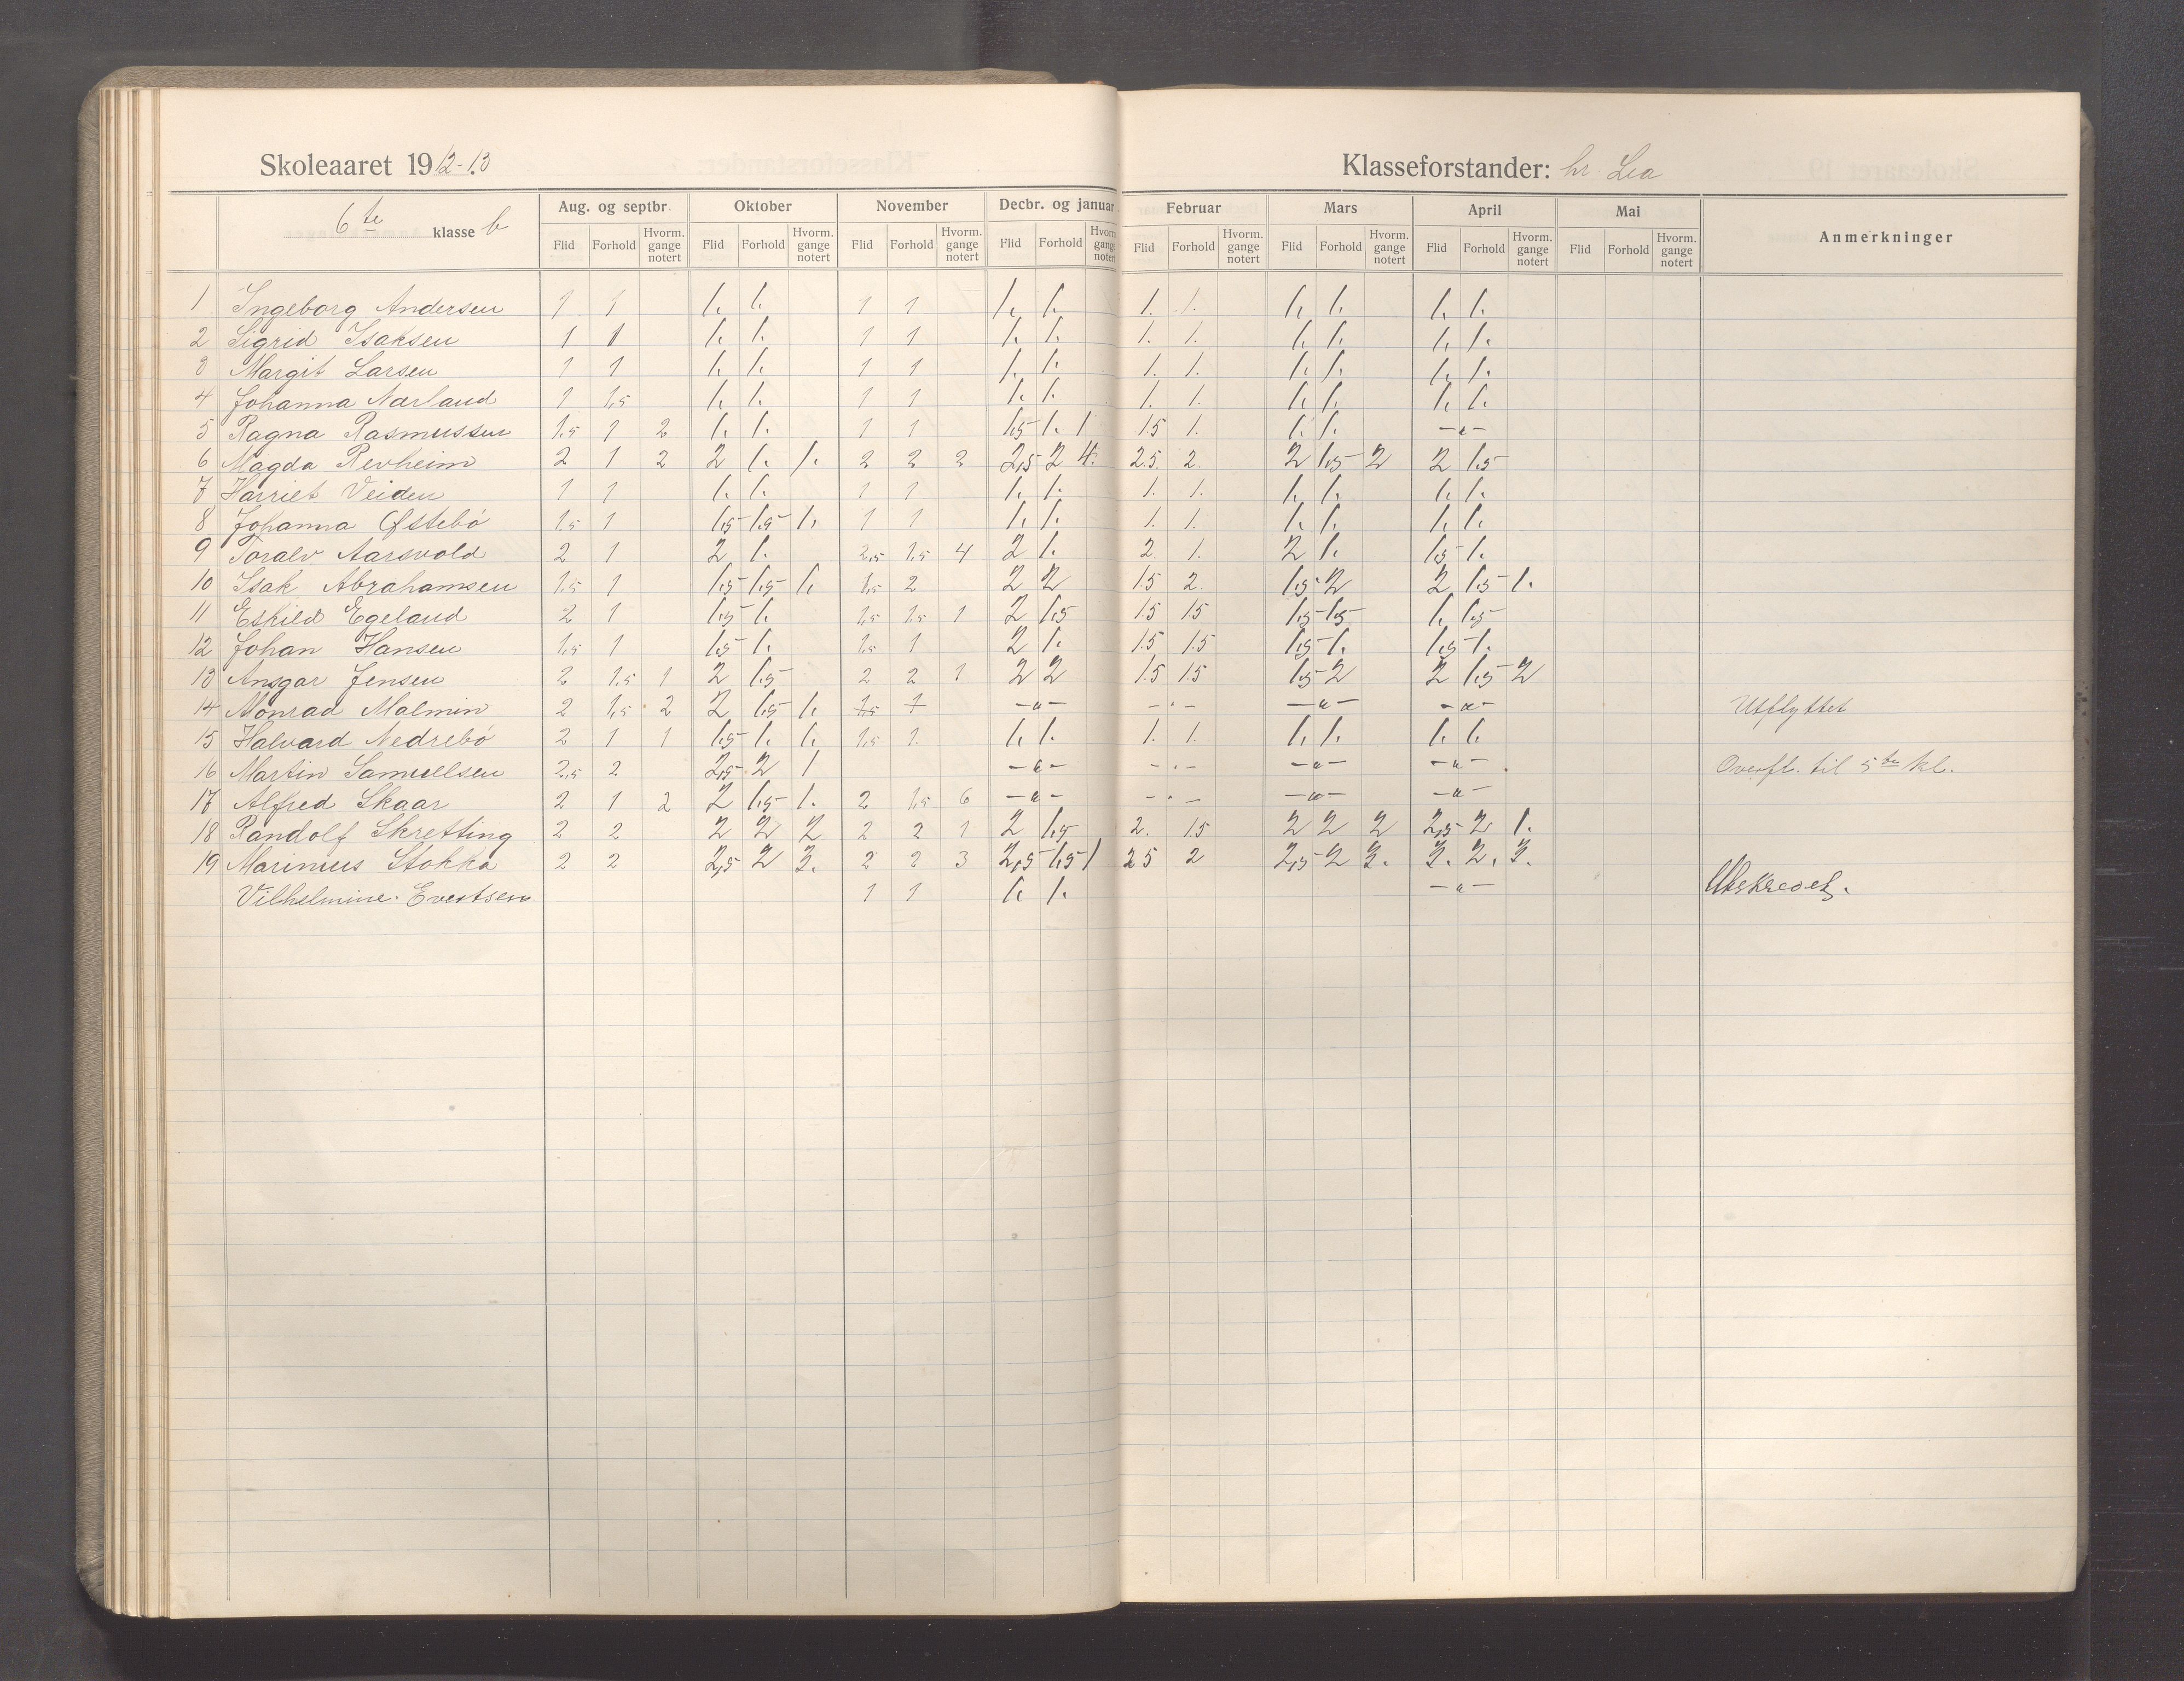 Skoleaaret 1912-13 Klasseforstander: hr. Lea
6te klasse b Aug. og septbr. Oktober November Decbr. og januar Februar Mars April Mai Anmerkninger
Flid Forhold Hvorm. gange notert Flid Forhold Hvorm. gange notert Flid Forhold Hvorm. gange notert Flid Forhold Hvorm. gange notert Flid Forhold Hvorm. gange notert Flid Forhold Hvorm. gange notert Flid Forhold Hvorm. gange notert Flid Forhold Hvorm. gange notert
1 Ingeborg Andersen 1 1 1. 1. 1 1 1. 1. 1. 1. 1. 1. 1. 1.
2 Sigrid Isaksen 1 1 1. 1. 1 1 1. 1. 1. 1. 1. 1. 1. 1.
3 Margit Larsen 1 1 1. 1. 1 1 1. 1. 1. 1. 1. 1. 1. 1.
4 Johanna Nærland 1 1,5 1. 1. 1 1 1. 1. 1. 1. 1. 1. 1. 1.
5 Ragna Rasmussen 1,5 1 2 1. 1. 1 1 1,5 1. 1 1.5 1. 1. 1. -"-
6 Magda Revheim 2 1 2 2 1. 1. 2 2 2 2,5 2 4. 2.5. 2. 2 1,5 2 2 1,5
7 Harriet Veiden 1 1 1. 1. 1 1 1. 1. 1. 1. 1. 1. 1. 1.
8 Johanna Østebö 1,5 1 1,5 1,5 1. 1 1 1. 1. 1. 1. 1. 1. 1. 1.
9 Toralv Aarsvold 2 1 2 1. 2,5 1,5 4 2 1. 2. 1. 2 1. 1,5 1.
10 Isak Abrahamsen 1,5 1 1,5 1,5 1. 1,5 2 2 2 1.5 2. 1,5 2 2 1,5 1.
11 Eskild Egeland 2 1 1,5 1. 1,5 1,5 1 2 1,5 1.5 1.5 1,5 1,5 1. 1,5
12 Johan Hansen 1,5 1 1,5 1. 1,5 1 2 1. 1.5 1.5 1,5 1. 1,5 1.
13 Ansgar Jensen 2 1.5 1 2 1,5 2 2 1 2 2 1.5 1.5 1,5 2 2 1,5 2
14 Monrad Malmin 2 1,5 2 2 1,5 1. 1,5 1 -"- -"- -"- -"- Utflyttet
15 Halvard Nedrebö 2 1 1 1,5 1. 1. 1,5 1. 1. 1. 1. 1. 1. 1. 1. 1.
16 Martin Samuelsen 2,5 2 2,5 2 1 -"- -"- -"- -"- Overfl. til 5te kl.
17 Alfred Skaar 2 1 2 2 1,5 1. 2 1,5 6 -"- -"- -"- -"-
18 Randolf Skretting 2 2 2 2 2 2 2 1 2 1,5 2. 1.5 2 2 2 2,5 2 1.
19 Marinius Stokka 2 2 2,5 2 3. 2 2 3 2,5 1,5 1 2 5 2 2,5 2 3. 3. 2. 3.
Vilhelmine Evertsen 1 1 1. 1. -"- Utskrevet.